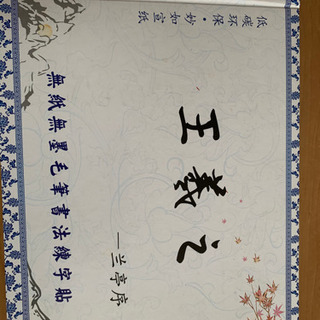 低碳环保·妙如宣纸
王羲之
—兰亭序
無紙無墨毛筆書法練字貼